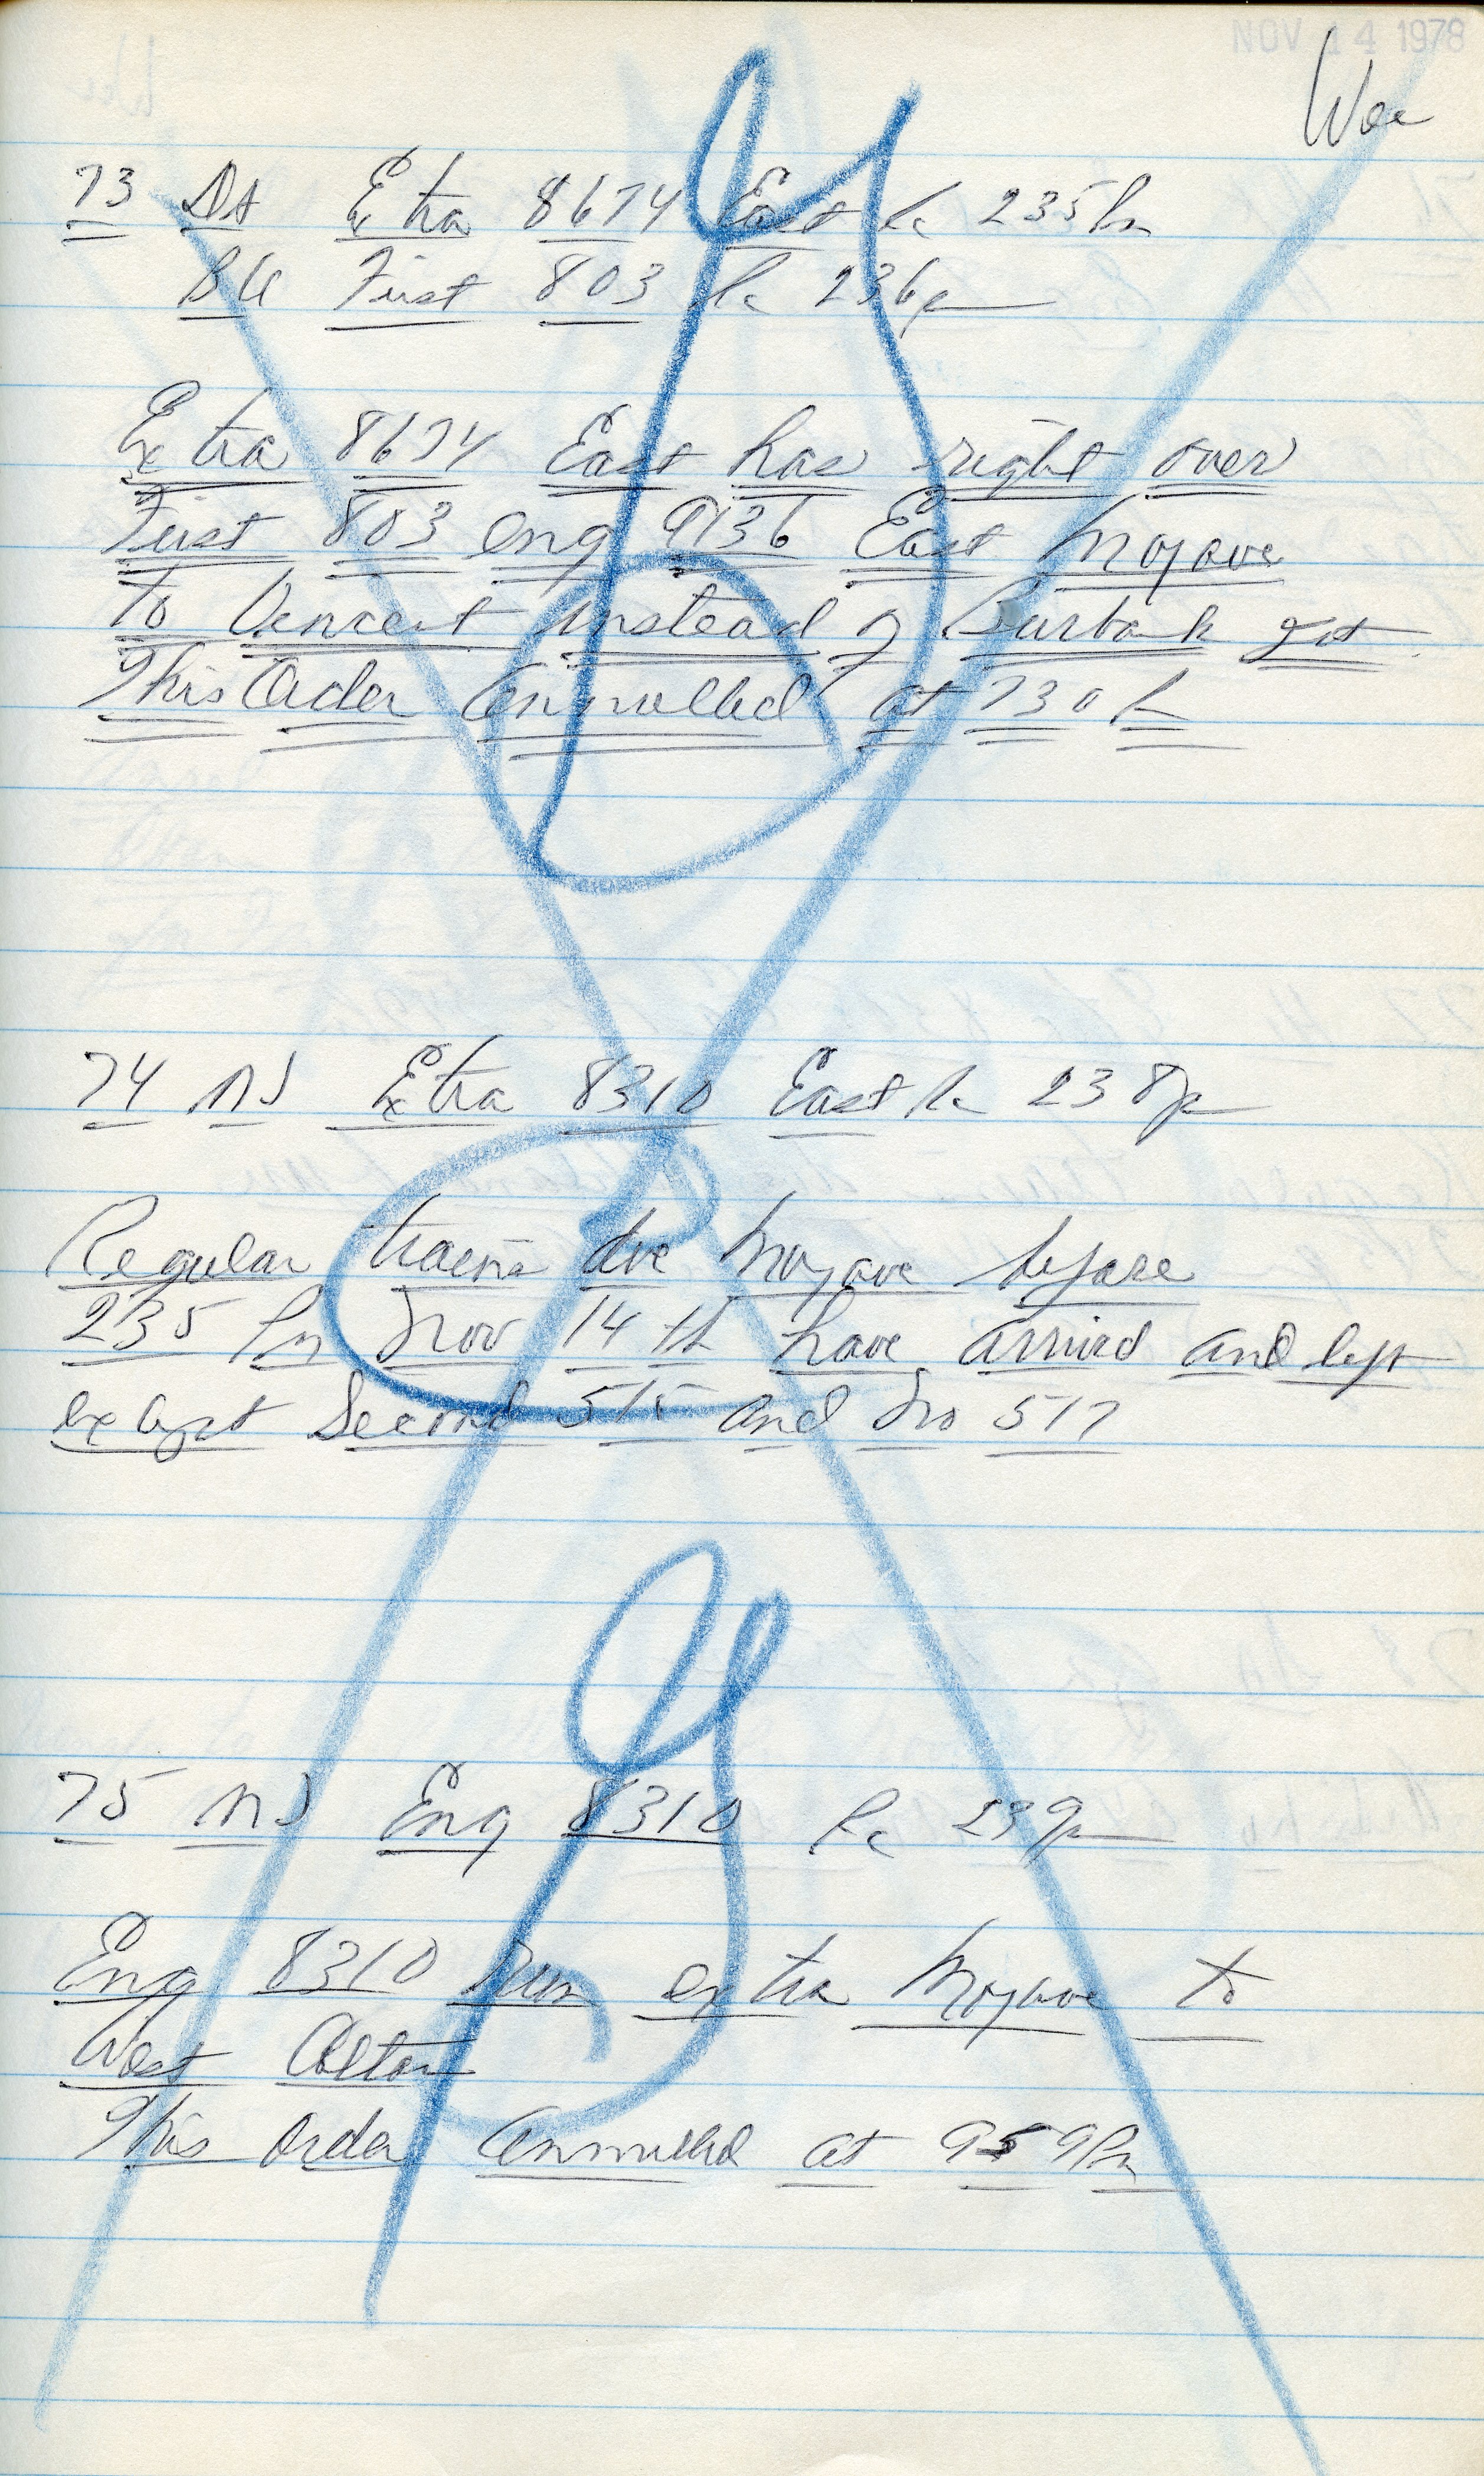 NOV 14 1978
73 DS Extra 8674 East Rc 235 Pm
BU First 803 Rc 236 p
Extra 8674 East has right over
First 803 eng 9136 East Mojave
to Vincent instead of Burbank Jct
This Order Annulled at 730 P
74 MJ Extra 8310 East Rc 238 p
Regular trains due Mojave before
235 Pm Nov 14th have arrived and left
except Second 515 and No 517
75 MJ Eng 8310 Rc 239 p
Eng 8310 Run extra Mojave to
West Colton
This Order Annulled at 959 Pm